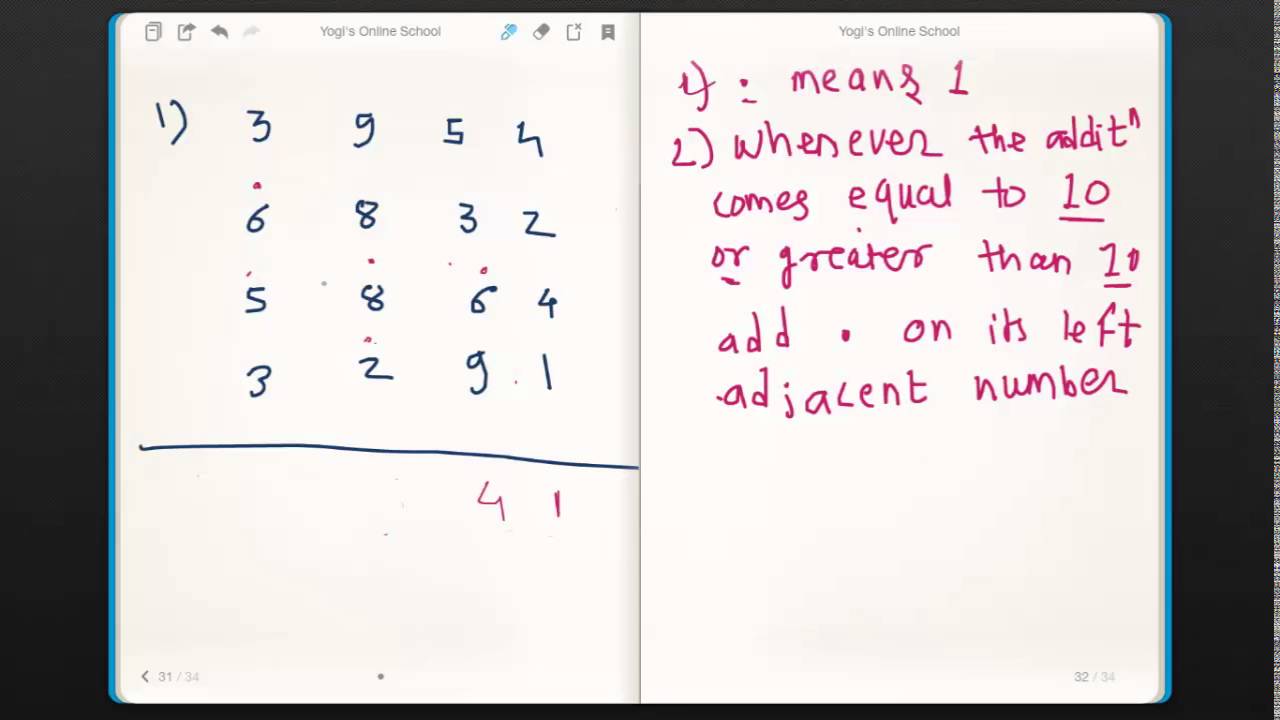 Yogi's Online School
1) 3 9 5 4
6 8 3 2
5 8 6 4
3 2 9 1
4 1
31 / 34
Yogi's Online School
1) • means 1
2) whenever the additⁿ
comes equal to 10
or greater than 10
add • on its left
adjacent number
32 / 34